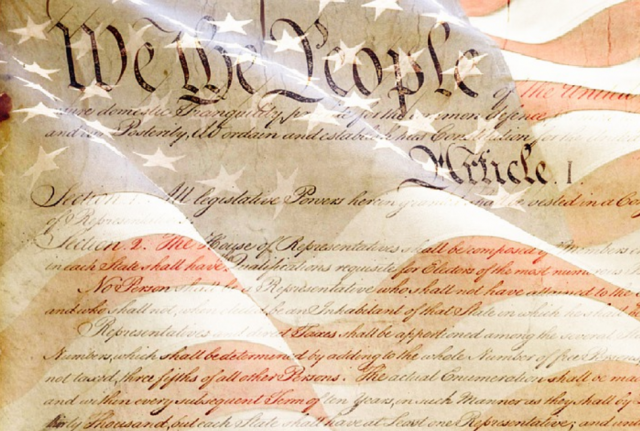 We the People
of the United
sure domestic Tranquility, for the common defence
and our Posterity, do ordain and establish this Constitution for
Article. I
Section 1. All legislative Powers herein vested in a
of Representatives
Section 2. The House of Representatives shall be composed of Members
in each State shall have Qualifications requisite for Electors of the most numerous
No Person shall be a Representative who shall not have attained to the
and who shall not, when elected, be an Inhabitant of that State in which he shall
Representatives and direct Taxes shall be apportioned among the several
Numbers, which shall be determined by adding to the whole Number of free Persons
not taxed, three fifths of all other Persons. The actual Enumeration shall be ma
and within every subsequent Term of ten Years, in such Manner as they shall by
Thousand, but each State shall have at Least one Representative; and